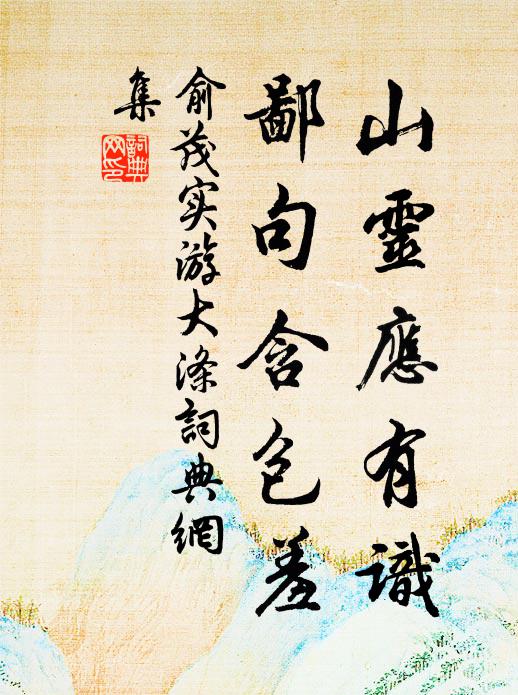 山靈應有識
鄙句含包羞
俞茂实游大涤詞典網
集
詞典
网印